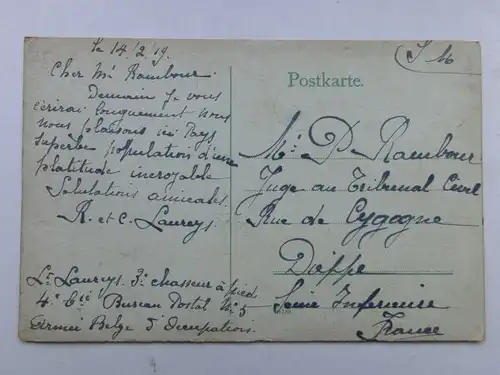 Le 14/2/19.
Cher Mr Rambour.
Demain Je vous
écrirai longuement nous
nous plaisons ici Pays
superbe population d'une
platitude incroyable
Salutations amicales.
R. et C. Laureys.
Lt Laureys. 3e chasseur à pied
4e Cie Bureau Postal No 5
Armée Belge d'Occupation.
S M
Postkarte.
Mr. P. Rambour
Juge au Tribunal Civil
Rue de Cygogne
Dieppe
Seine Inférieure
France